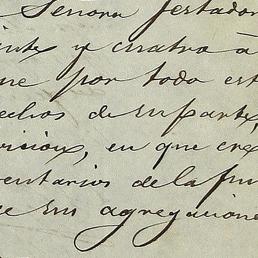 Senora testador
inte y cuatro á
ne por todo est
echos de su parte,
vicion, en que cre
entarios de la fin
e su agregacione